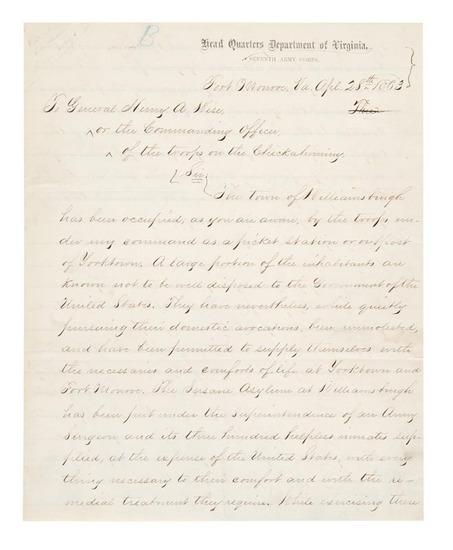 B
Head Quarters Department of Virginia.
SEVENTH ARMY CORPS.
Fort Monroe, Va. Apl. 28th 1863
To General Henry A. Wise,
or the Commanding Officer
of the troops on the Chickahominy
Sir
The town of Williamsburgh
has been occupied, as you are aware, by the troops un-
der my command as a picket station or outpost
of Yorktown. A large portion of the inhabitants are
known not to be well disposed to the Government of the
United States. They have nevertheless, while quietly
pursuing their domestic avocations, been unmolested,
and have been permitted to supply themselves with
the necessaries and comforts of life at Yorktown and
Fort Monroe. The Insane Asylum at Williamsburgh
has been put under the superintendence of an Army
Surgeon and its three hundred helpless inmates sup-
plied, at the expense of the United States, with every
thing necessary to their comfort and with the re-
medial treatment they require. While exercising these